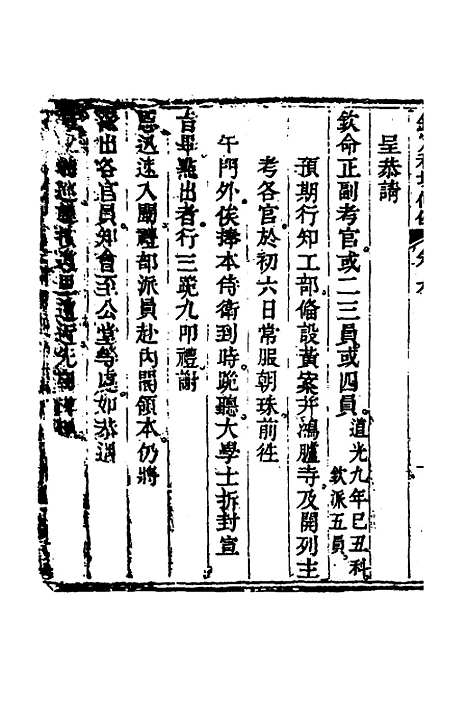 呈恭請
欽命正副考官或二三員或四員道光九年己丑科
欽派五員
預期行知工部備設黃案并鴻臚寺及開列主
考各官於初六日常服朝珠前往
午門外俟捧本侍衛到時跪聽大學士拆封宣
旨畢點出者行三跪九叩禮謝
恩迅速入闈禮部派員赴內閣領本仍將
出各官員知會至公堂等處如恭遇